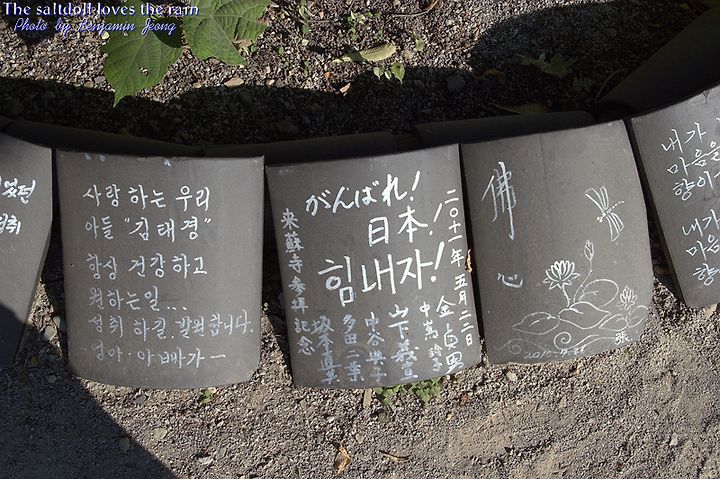 The saltdoll loves the rain
Photo by Benjamin Jeong
사랑하는 우리
아들 "김태경"
항상 건강하고
원하는일...
성취 하길. 발원합니다.
-엄마·아빠가-
がんばれ!
日本!
힘내자!
来蘇寺参拝記念
二〇十一年五月二二日
金貞男
中島 玲子
山下義宣
中谷典子
多田二葉
坂本真美
佛
心
내가
마음을
향이
내가
마음
향